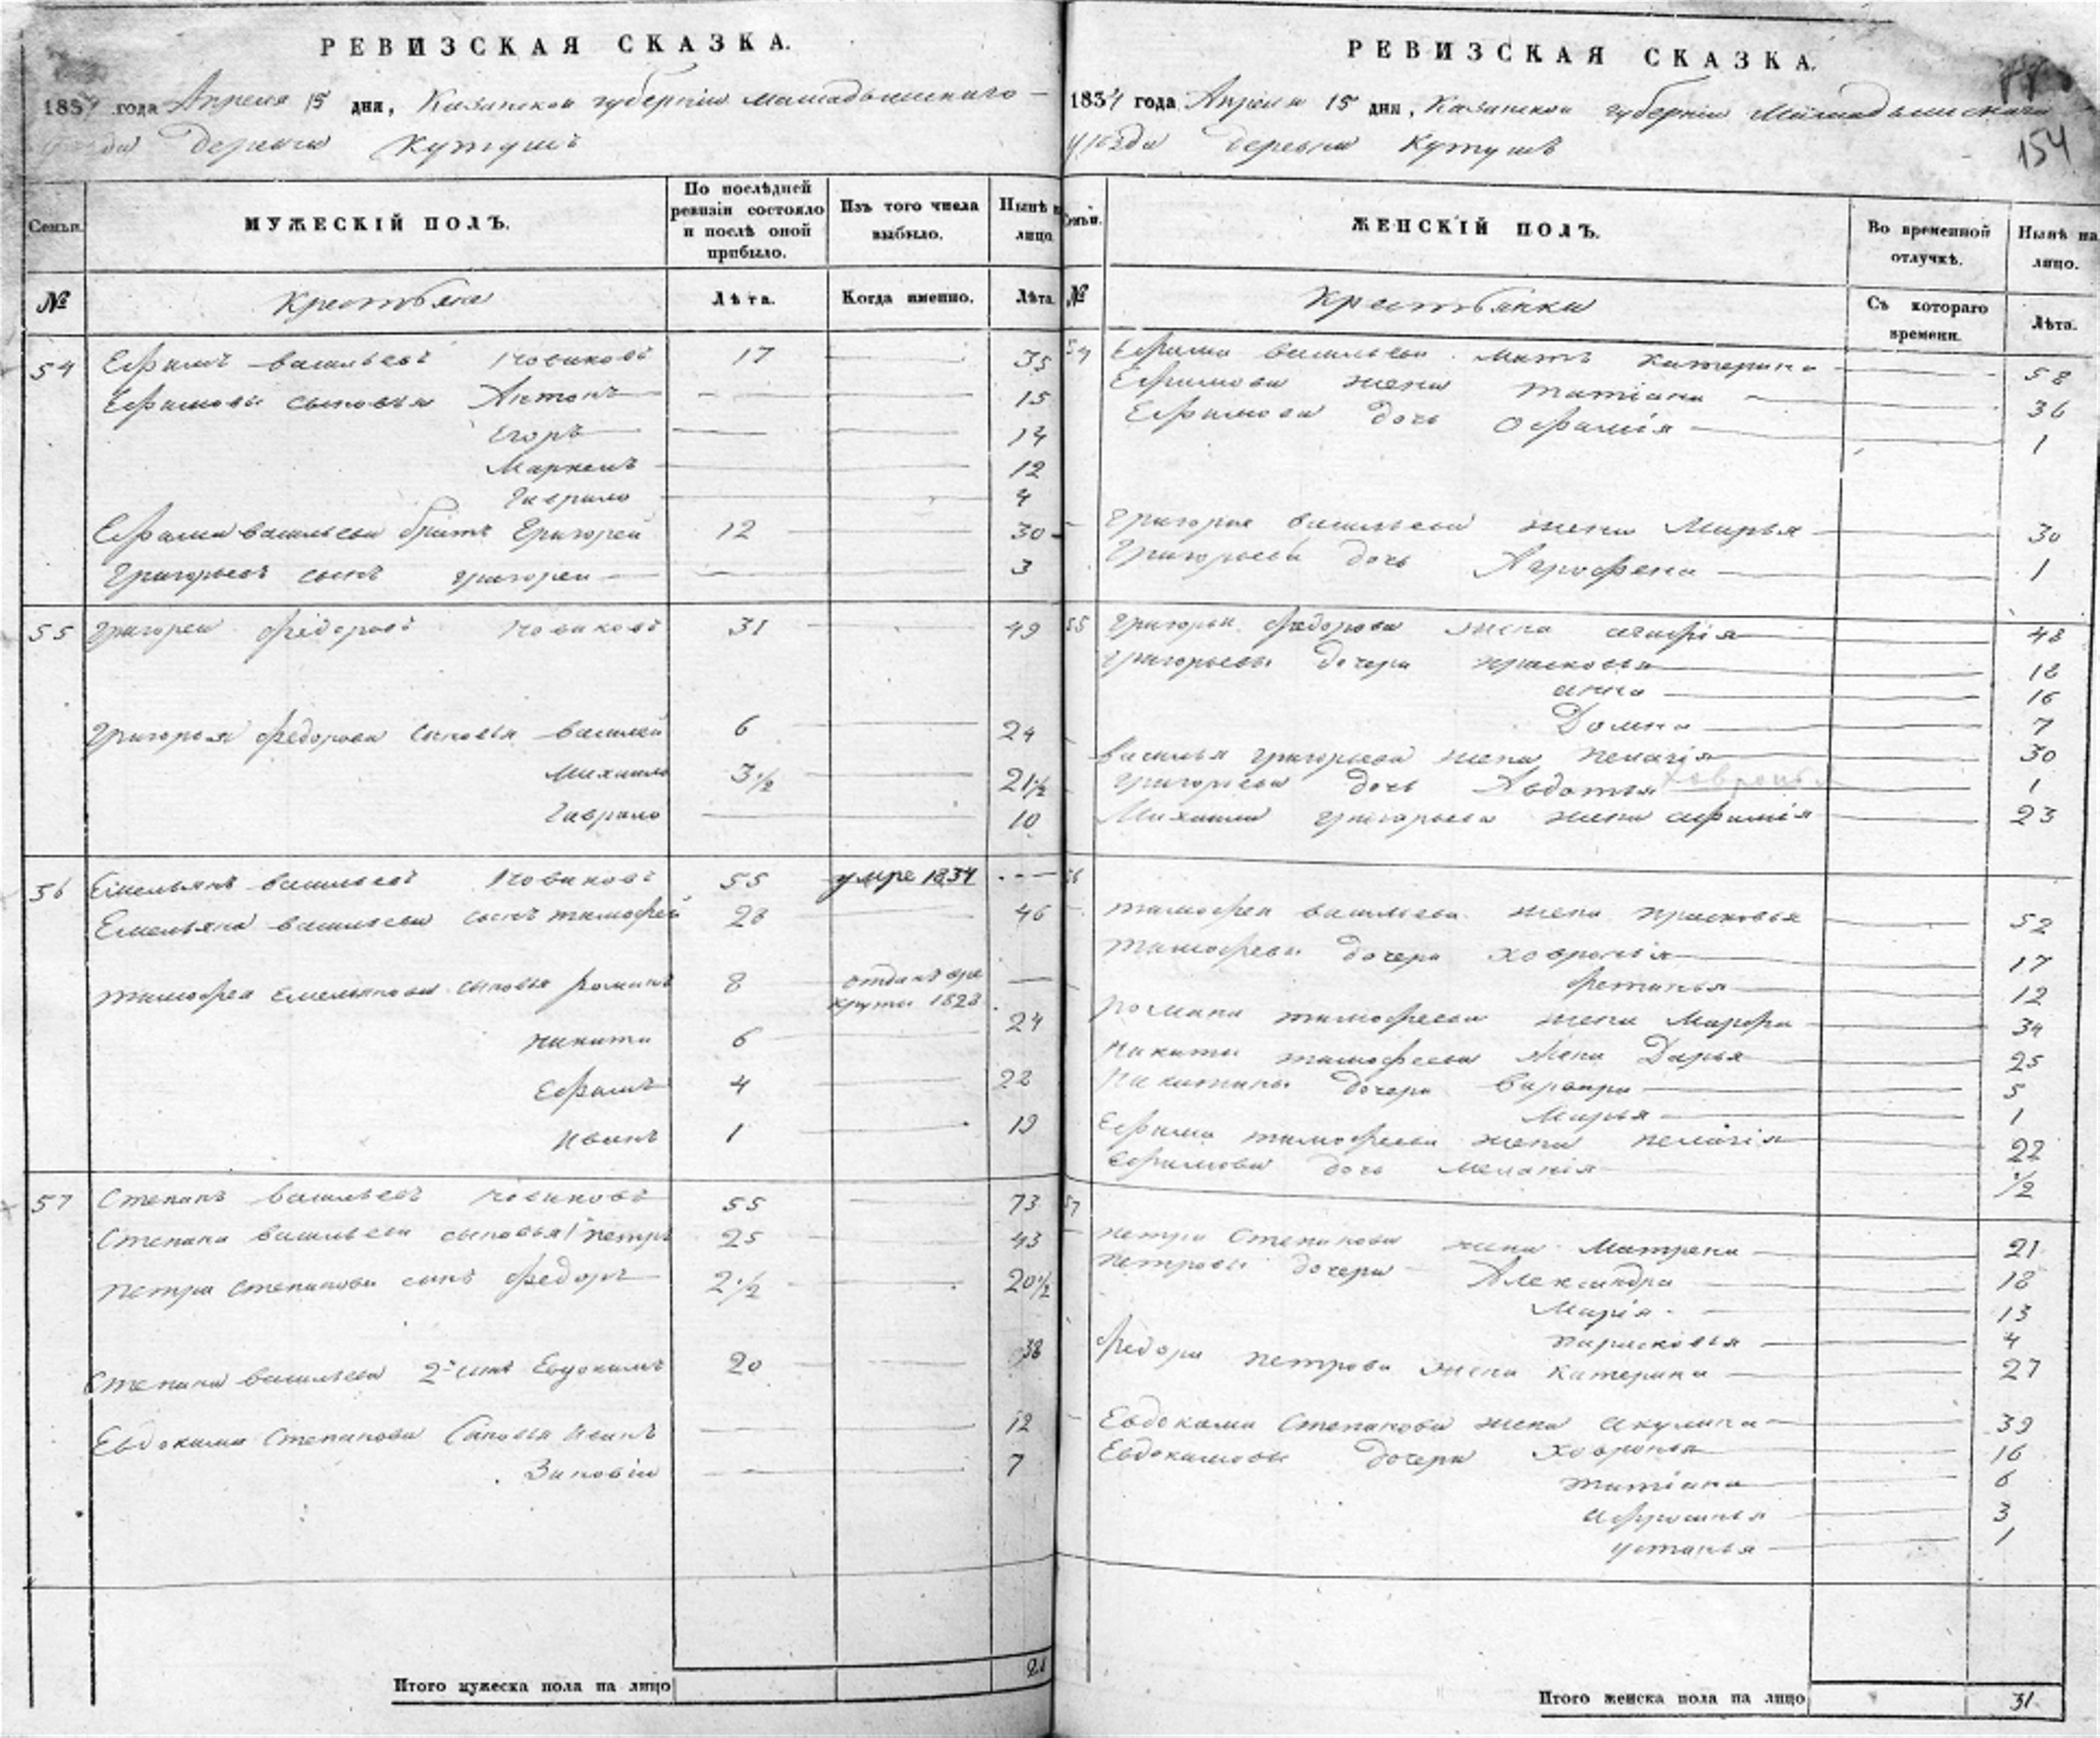 РЕВИЗСКАЯ СКАЗКА.
1834 года Апреля 15 дня, Казанской губернии мамадышскаго
уезда деревни Кутушъ
Семьи.
МУЖЕСКІЙ ПОЛЪ.
По послѣдней ревизіи состояло и послѣ оной прибыло.
Изъ того числа выбыло.
Нынѣ на лицо.
№
Крестьяне
Лѣта.
Когда именно.
Лѣта
54 Ефимъ васильевъ Новиковъ 17 35
Ефимовы сыновья Антонъ 15
Егоръ 14
Маркелъ 12
Гаврило 4
Ефима васильева братъ Григорей 12 30
Григорьевъ сынъ григореи 3
55 Григореи федоровъ Новиковъ 31 49
Григорья федорова сыновья василей 6 24
Михаило 3 1/2 21 1/2
Гаврило 10
56 Емельянъ васильевъ Новиковъ 55 умре 1834
Емельяна васильева сынъ тимофей 28 46
тимофея емельянова сыновья романъ 8 отданъ в рекруты 1828
никита 6 24
Ефимъ 4 22
Иванъ 1 19
57 Степанъ васильевъ новиковъ 55 73
Степана васильева сыновья 1й петръ 25 43
петра степанова сынъ федоръ 2 1/2 20 1/2
Степана васильева 2й сынъ Евдокимъ 20 38
Евдокима Степанова Сыновья Иванъ 12
Зиновіи 7
Итого мужеска пола на лицо 21
РЕВИЗСКАЯ СКАЗКА.
154
1834 года Апреля 15 дня, Казанской губерніи Мамадышскаго
уѣзда деревни Кутушъ
Семьи.
ЖЕНСКІЙ ПОЛЪ.
Во временной отлучкѣ.
Нынѣ на лицо.
№
Крестьянки
Съ котораго времени.
Лѣта.
54 Ефима васильева мать катерина 58
Ефимова жена татіана 36
Ефимова дочь Офимія 1
Григорья васильева жена Марья 30
Григорьева дочь Агрофена 1
55 Григорья федорова жена агафія 48
григорьевы дочери прасковья 18
анна 16
Домна 7
василья григорьева жена пелагія 30
григорьева дочь Авдотья ховронья 1
Михаила григорьева жена афимія 23
56 тимофея васильева жена прасковья 52
тимофеевы дочери ховронія 17
фетинья 12
романа тимофеева жена Марфа 34
никиты тимофеева жена Дарья 25
Никитины дочери Варвара 5
Марья 1
Ефима тимофеева жена пелагія 22
Ефимова дочь меланія 1/2
57 петра Степанова жена Матрена 21
петровы дочери Александра 18
Марія 13
парасковья 4
федора петрова жена катерина 27
Евдокима Степанова жена акулина 39
Евдокимовы дочери ховронья 16
татіана 6
афросинья 3
устинья 1
Итого женска пола на лицо 31